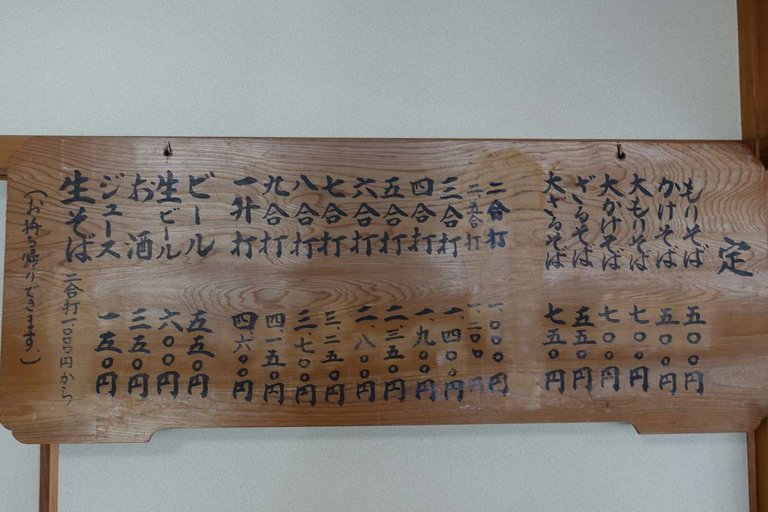 定
もりそば 五〇〇円
かけそば 五〇〇円
大もりそば 七〇〇円
大かけそば 七〇〇円
ざるそば 五五〇円
大ざるそば 七五〇円
二合打 一、〇〇〇円
二五合打 一、二〇〇円
三合打 一、四〇〇円
四合打 一、九〇〇円
五合打 二、三五〇円
六合打 二、八〇〇円
七合打 三、二五〇円
八合打 三、七〇〇円
九合打 四、一五〇円
一升打 四、六〇〇円
ビール 五五〇円
生ビール 六〇〇円
お酒 三五〇円
ジュース 一五〇円
生そば 二合打一、〇〇〇円から
(お持ち帰りできます。)